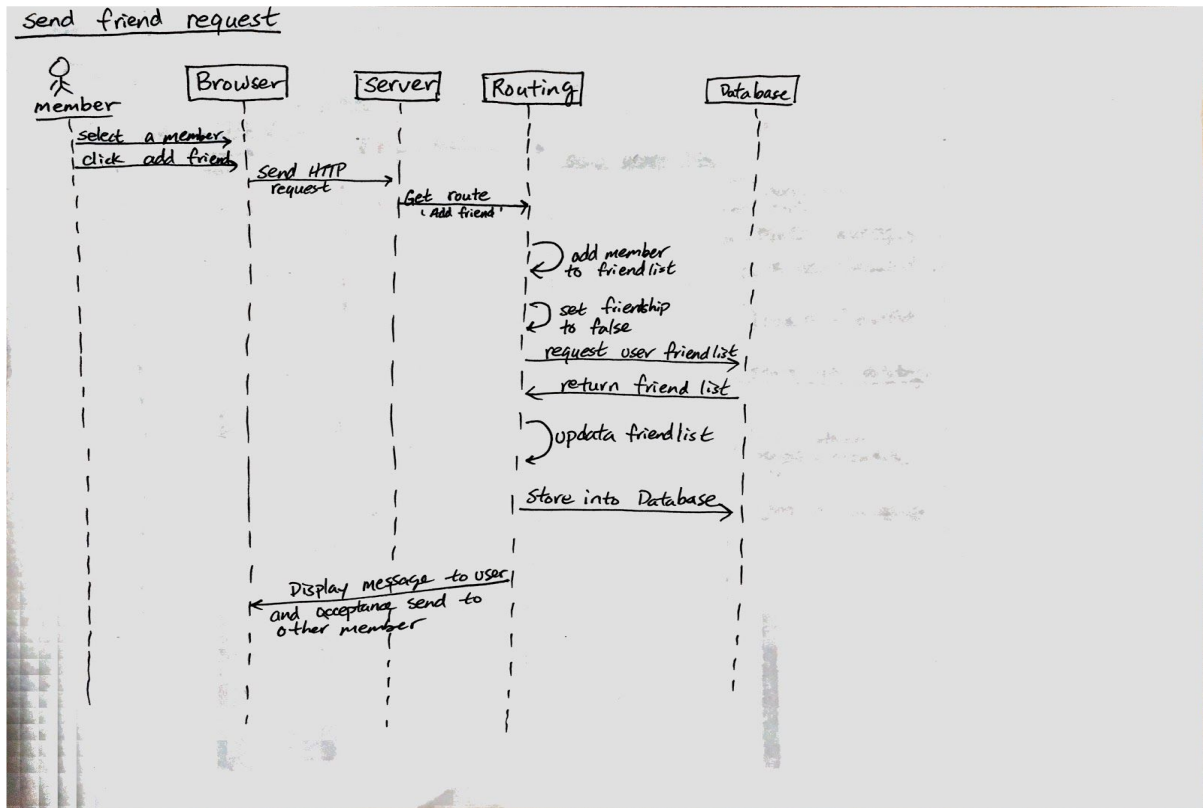 Send friend request
member
Browser
Server
Routing
Database
select a member
click add friend
send HTTP
request
Get route
'Add friend'
add member
to friendlist
set friendship
to false
request user friendlist
return friend list
updata friendlist
Store into Database
Display message to user
and acceptance send to
other member